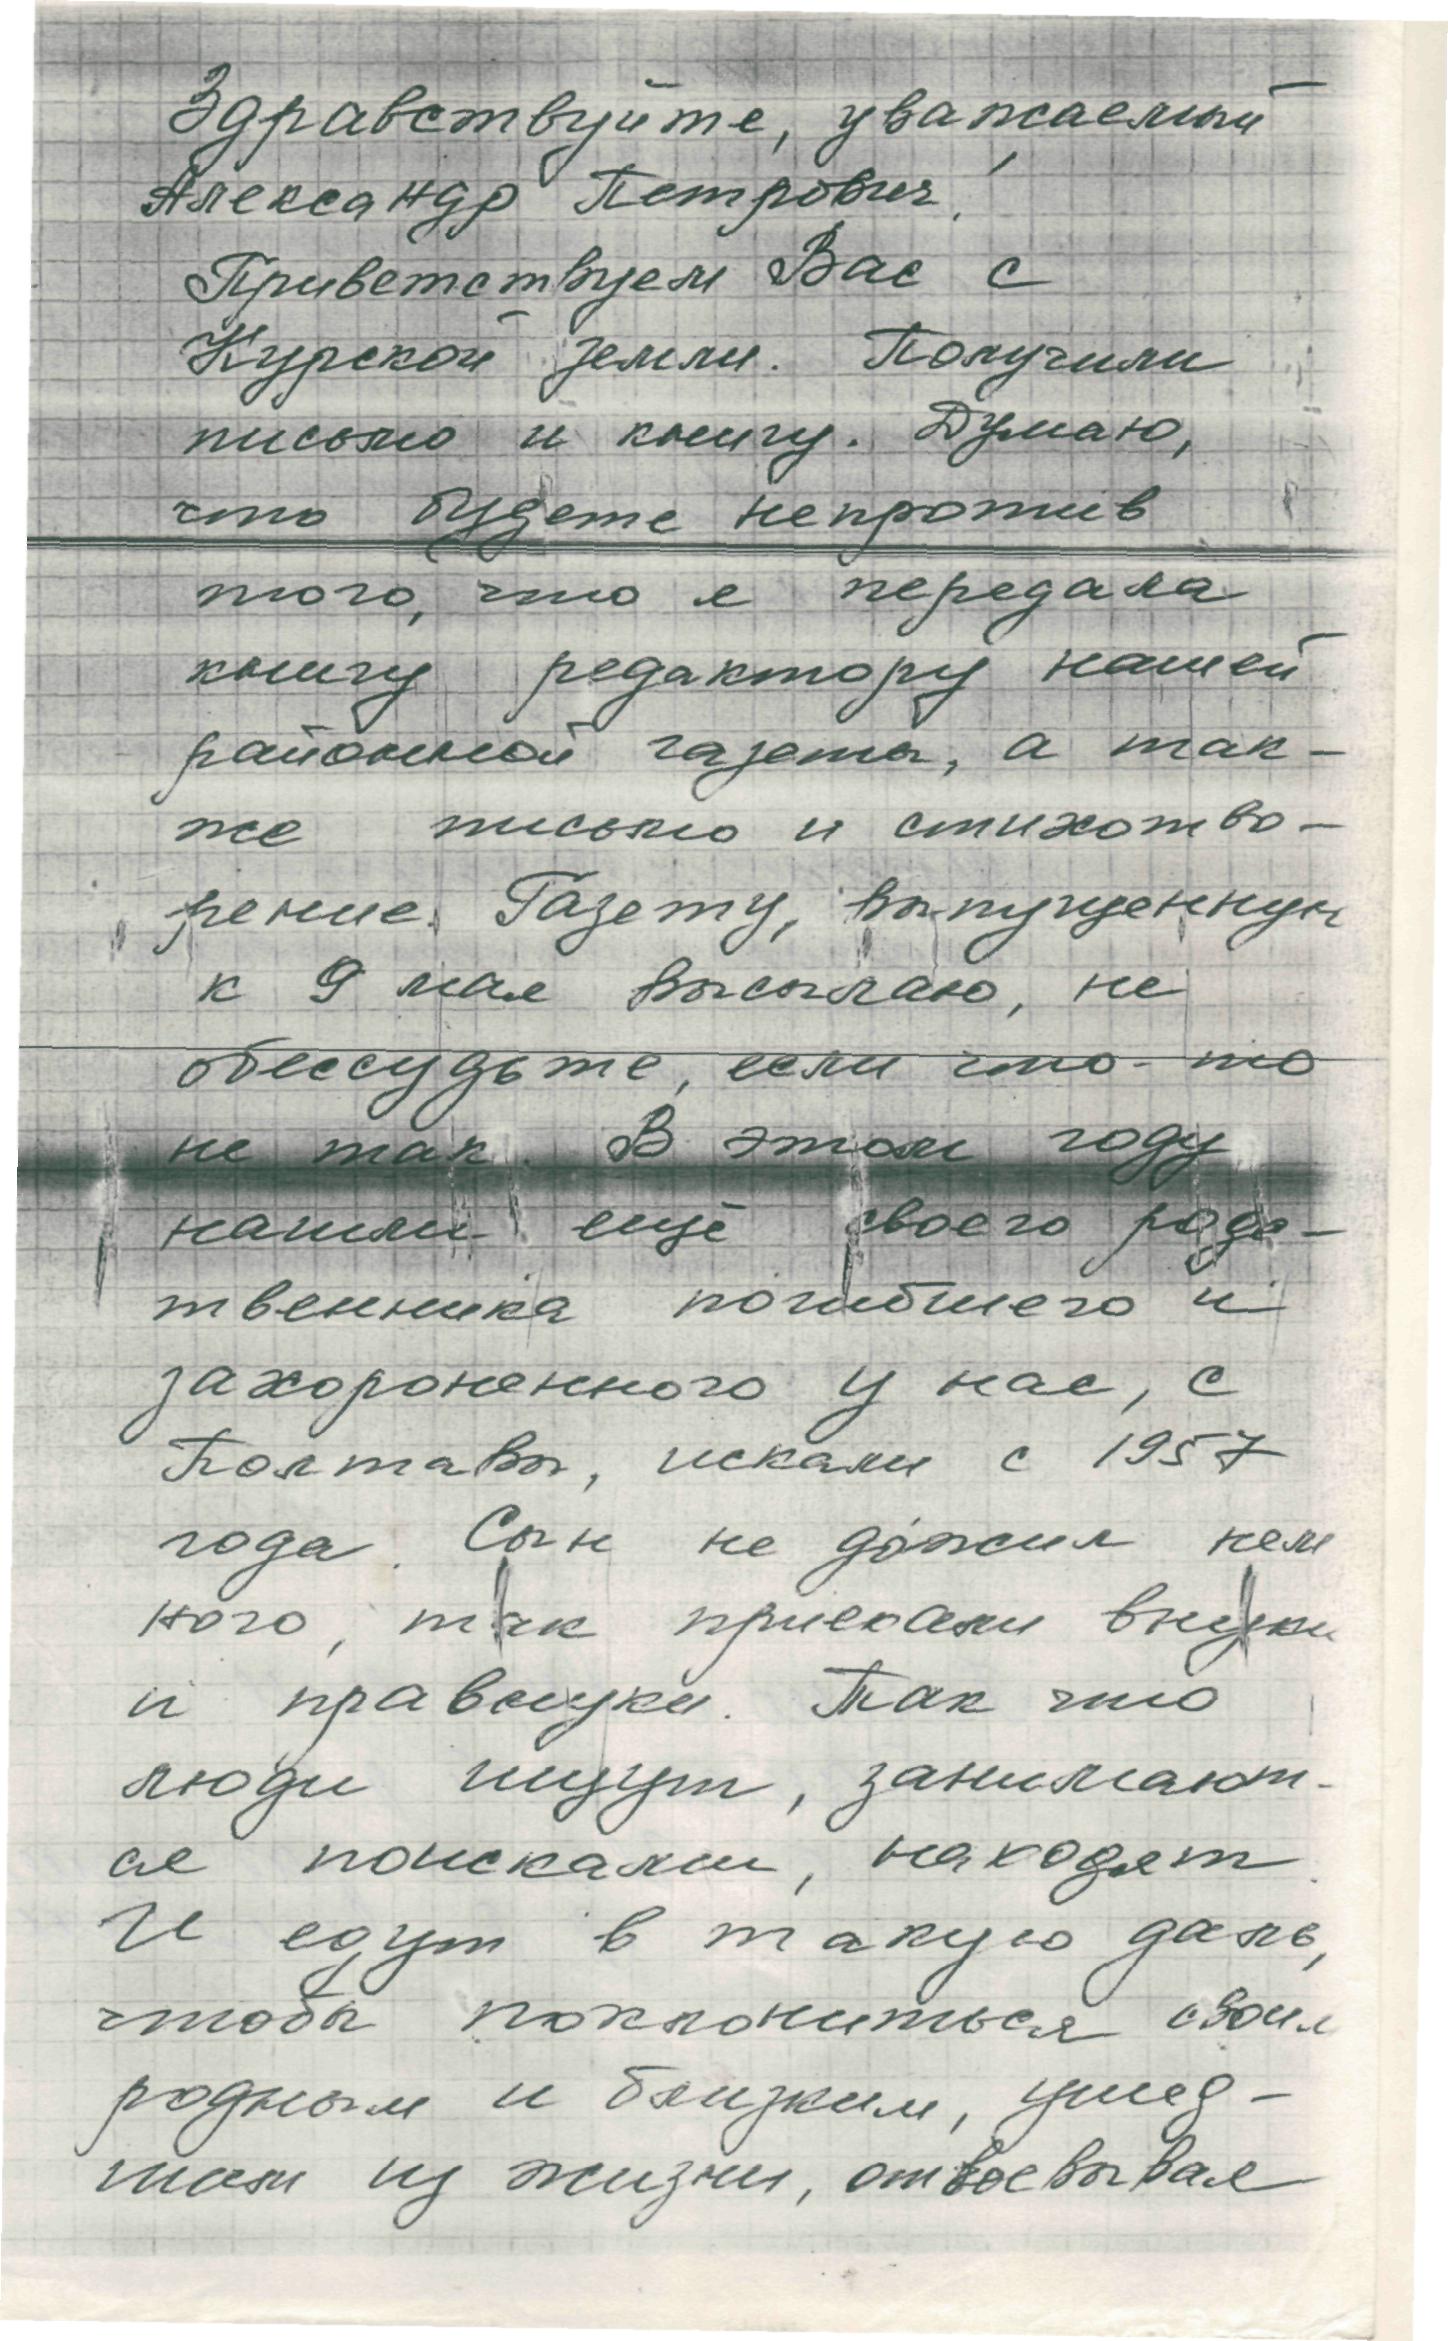 Здравствуйте, уважаемый
Александр Петрович!
Приветствуем Вас с
Курской земли. Получили
письмо и книгу. Думаю,
что будете непротив
того, что я передала
книгу редактору нашей
районной газеты, а так-
же письмо и стихотво-
рение. Газету, выпущенную
к 9 мая высылаю, не
обессудьте, если что-то
не так. В этом году
нашли ещё своего родс-
твенника погибшего и
захороненного у нас, с
Полтавы, искали с 1957
года. Сын не дожил нем
ного, так приехали внуки
и правнуки. Так что
люди ищут, занимают-
ся поисками, находят.
И едут в такую даль,
чтобы поклониться своим
родным и близким, ушед-
шим из жизни, отвоевывая